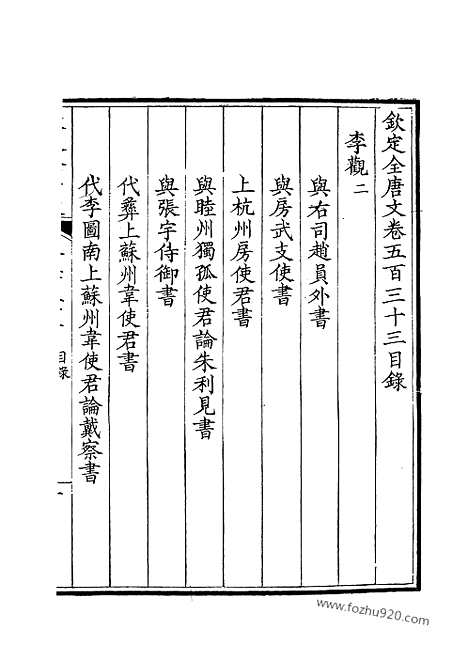 欽定全唐文卷五百三十三目錄
李觀二
與右司趙員外書
與房武支使書
上杭州房使君書
與睦州獨孤使君論朱利見書
與張宇侍御書
代彝上蘇州韋使君書
代李圖南上蘇州韋使君論戴察書
目錄
www.fozhu920.com